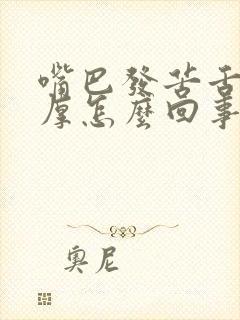 嘴巴發苦舌
厚怎麼回事
奧尼